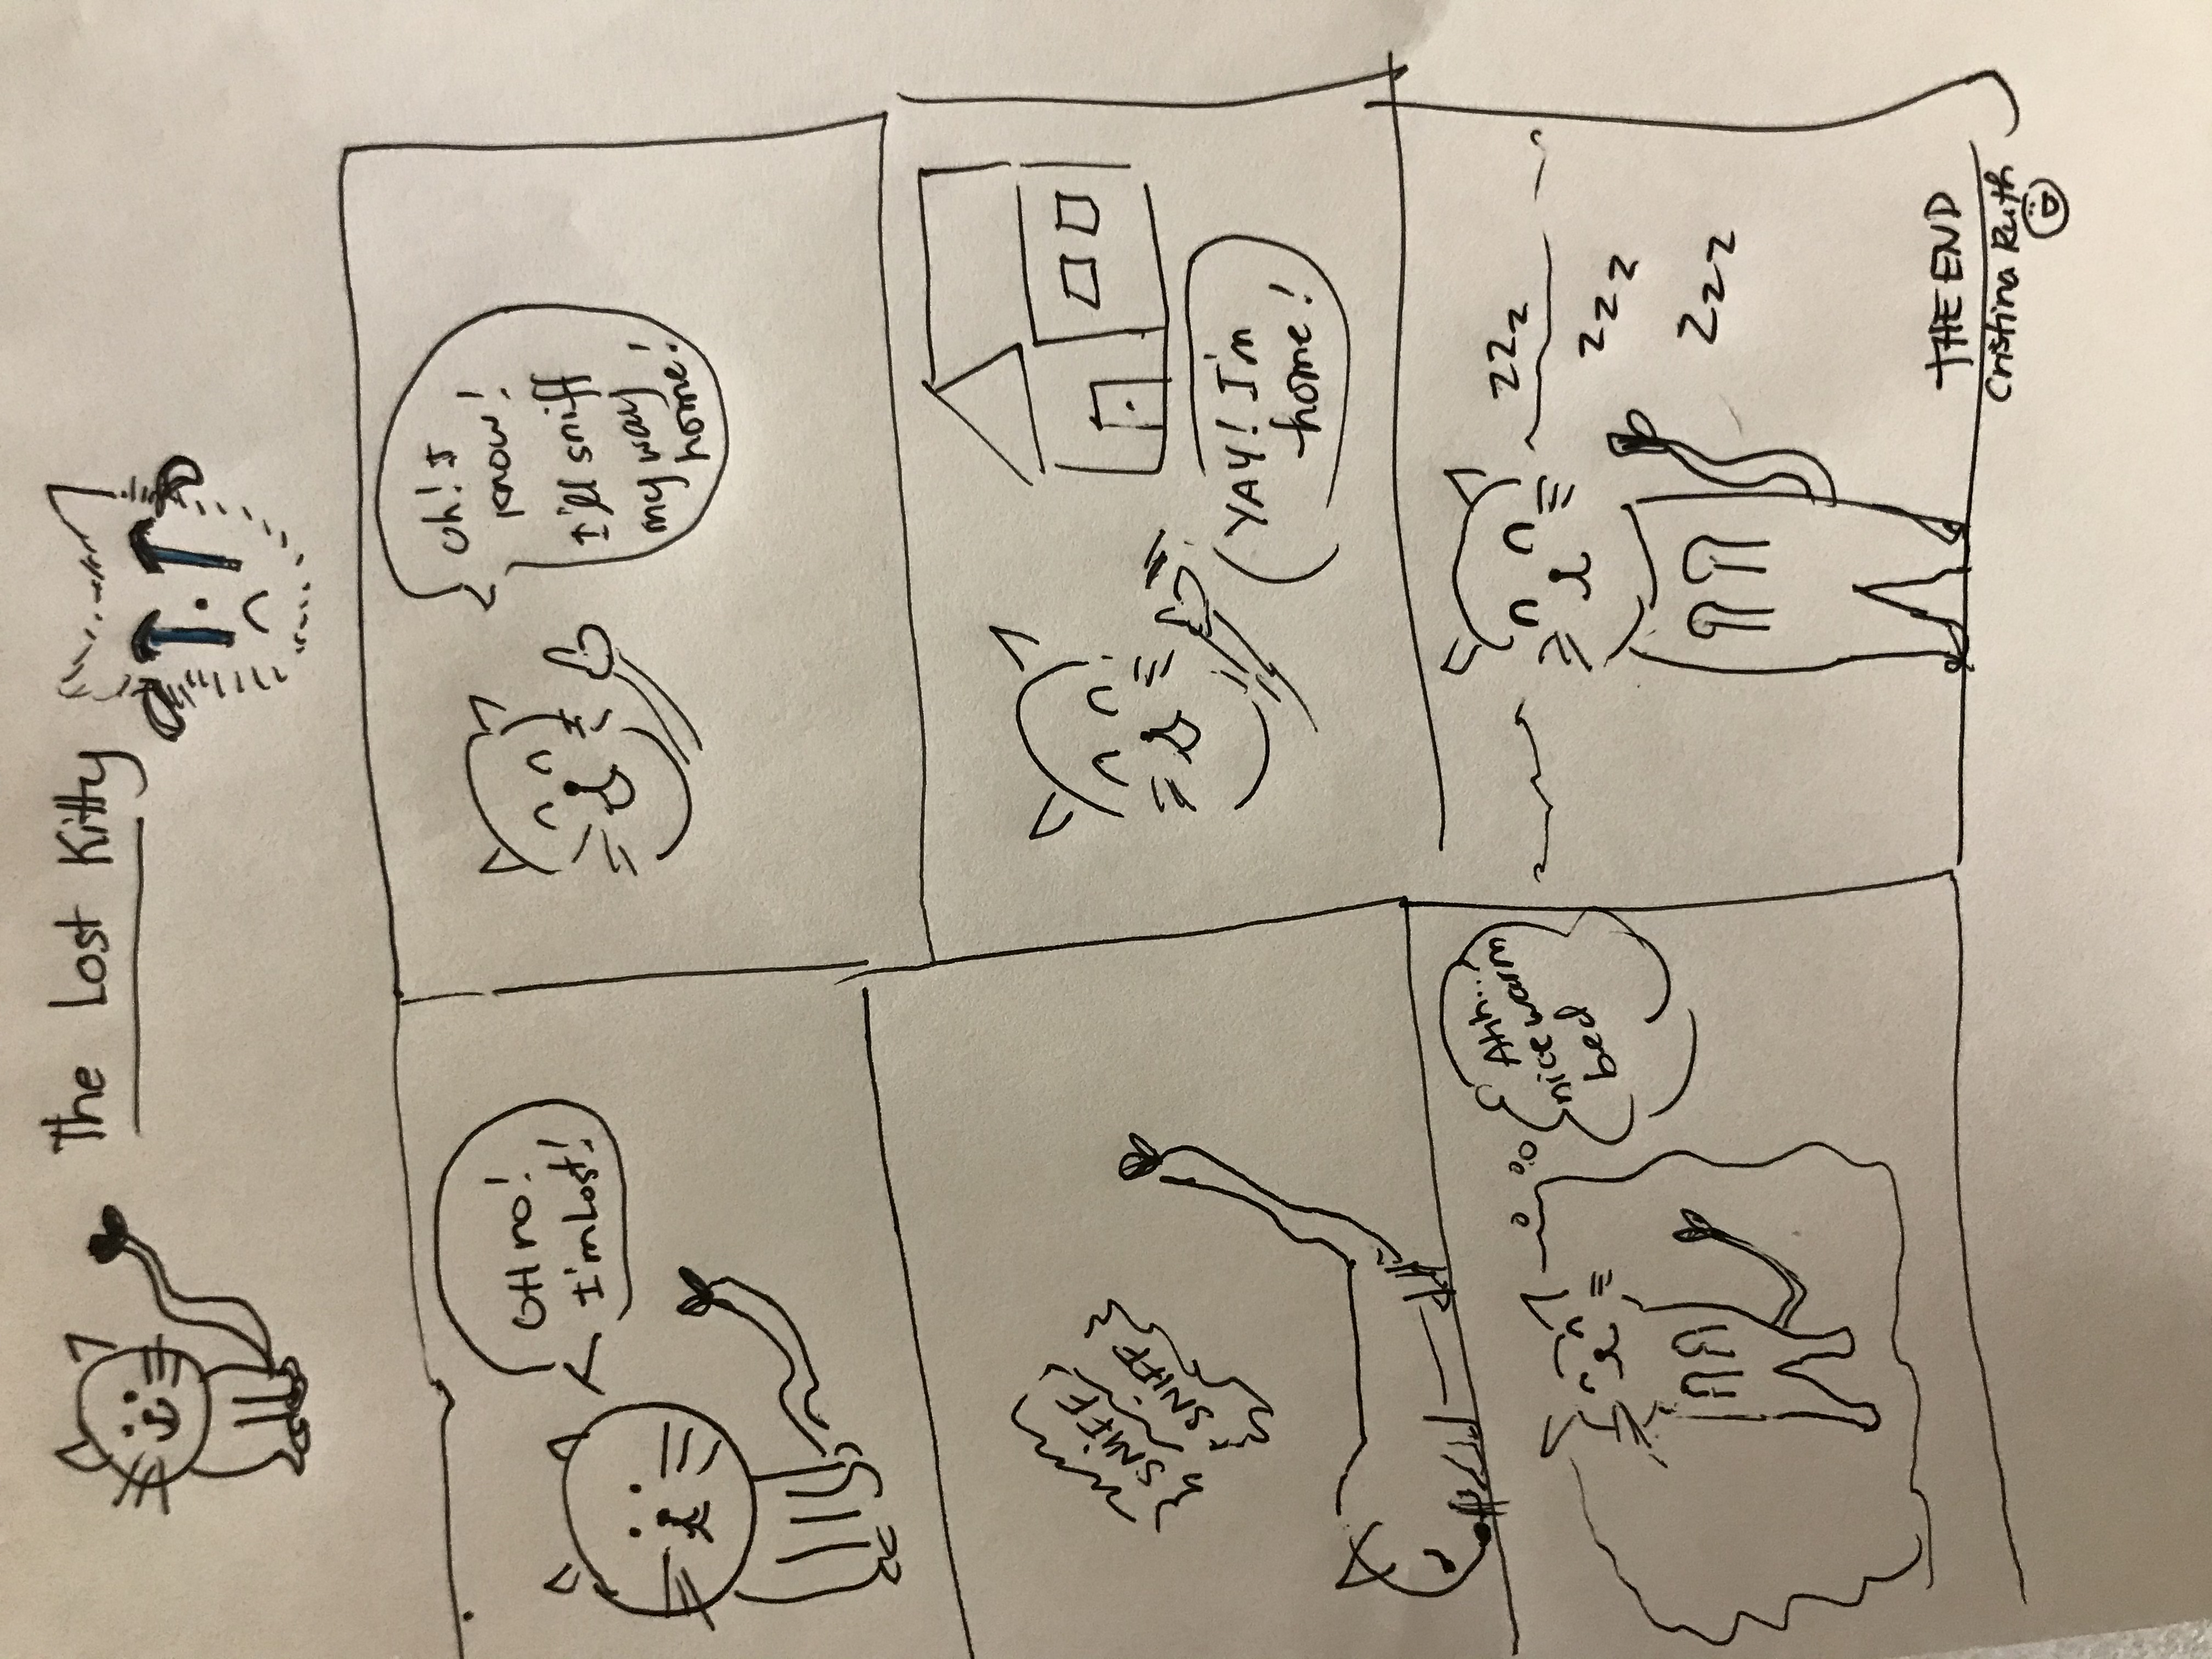 The Lost Kitty
OH no!
I'm Lost!
Oh! I
know!
I'll sniff
my way
home!
SNIFF
SNIFF
YAY! I'm
home!
Ahh...
nice warm
bed
ZZZ
ZZZ
ZZZ
THE END
Cristina Ruth